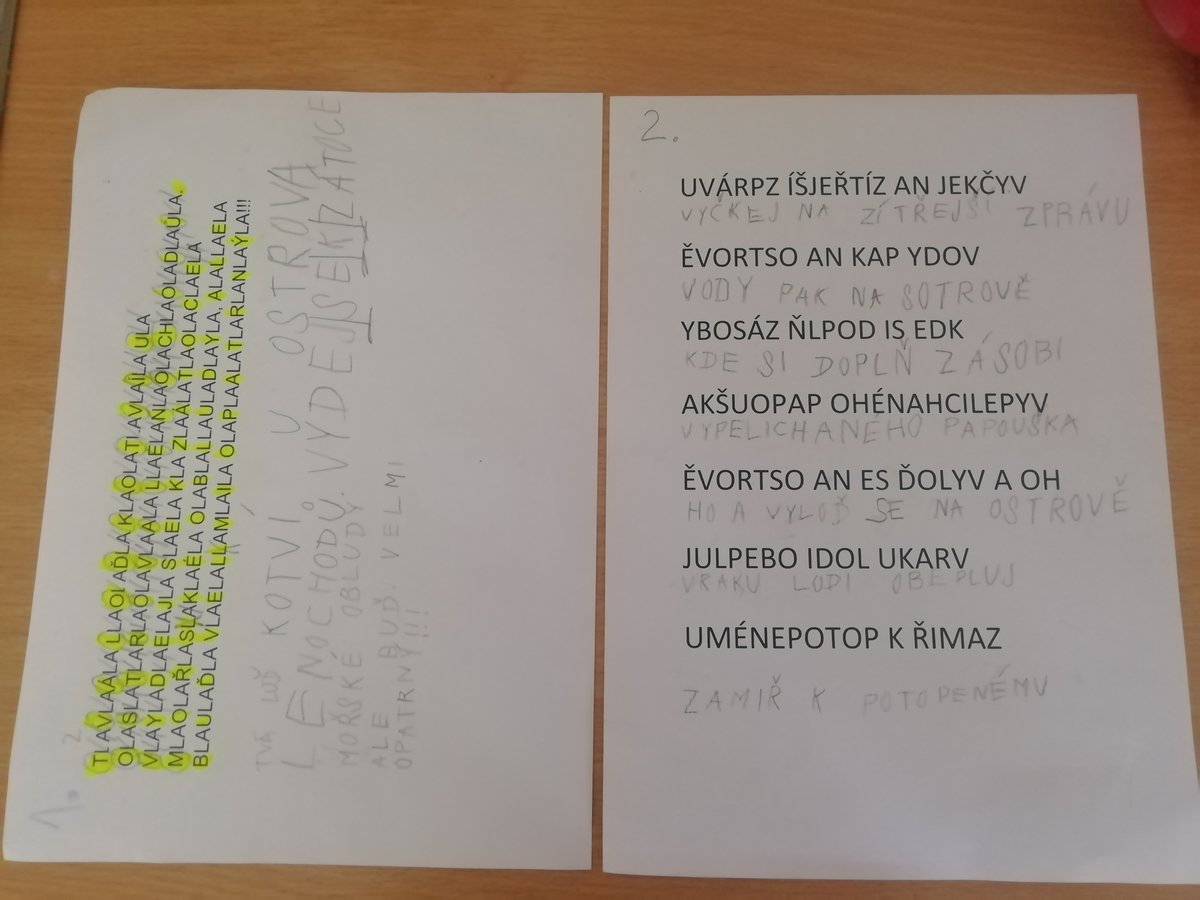 1.
2
TLAVLAÁLA LLAOLAĎLA KLAOLATLAVLAÍLA ULA
OLASLATLARLAOLAVLAALA LLAELANLAOLACHLAOLADLAŮLA.
VLAYLADLAELAJLA SLAELA KLA ZLAÁLATLAOLACLAELA
MLAOLAŘLASLAKLAÉLA OLABLALLAULADLAYLA, ALALLAELA
BLAULAĎLA VLAELALLAMLAILA OLAPLAALATLARLANLAÝLA!!!
TVÁ KOTVÍ U OSTROVA
LENOCHODŮ. VYDEJ SE K ZÁTOCE
MOŘSKÉ OBLUDY.
ALE BUĎ VELMI
OPATRNÝ!!!
2.
UVÁRPZ ÍŠJEŘTÍZ AN JEKČYV
VYČKEJ NA ZÍTŘEJŠÍ ZPRÁVU
ĚVORTSO AN KAP YDOV
VODY PAK NA SOTROVĚ
YBOSÁZ ŇLPOD IS EDK
KDE SI DOPLŇ ZÁSOBI
AKŠUOPAP OHÉNAHCILEPYV
VYPELICHANÉHO PAPOUŠKA
ĚVORTSO AN ES ĎOLYV A OH
HO A VYLOĎ SE NA OSTROVĚ
JULPEBO IDOL UKARV
VRAKU LODI OBEPLUJ
UMÉNEPOTOP K ŘIMAZ
ZAMIŘ K POTOPENÉMU